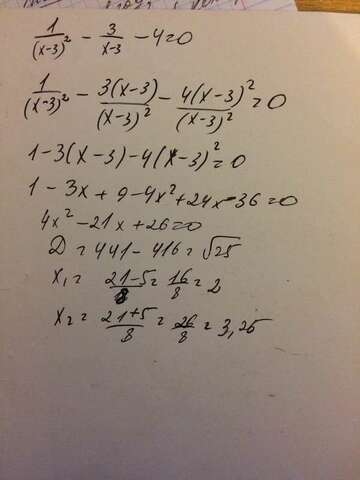 1/(x-3)² - 3/x-3 - 4=0
1/(x-3)² - 3(x-3)/(x-3)² - 4(x-3)²/(x-3)² = 0
1-3(x-3)-4(x-3)²=0
1-3x+9-4x²+24x-36=0
4x²-21x+26=0
D=441-416=√25
x₁= 21-5/8 = 16/8 = 2
x₂= 21+5/8 = 26/8 = 3,25